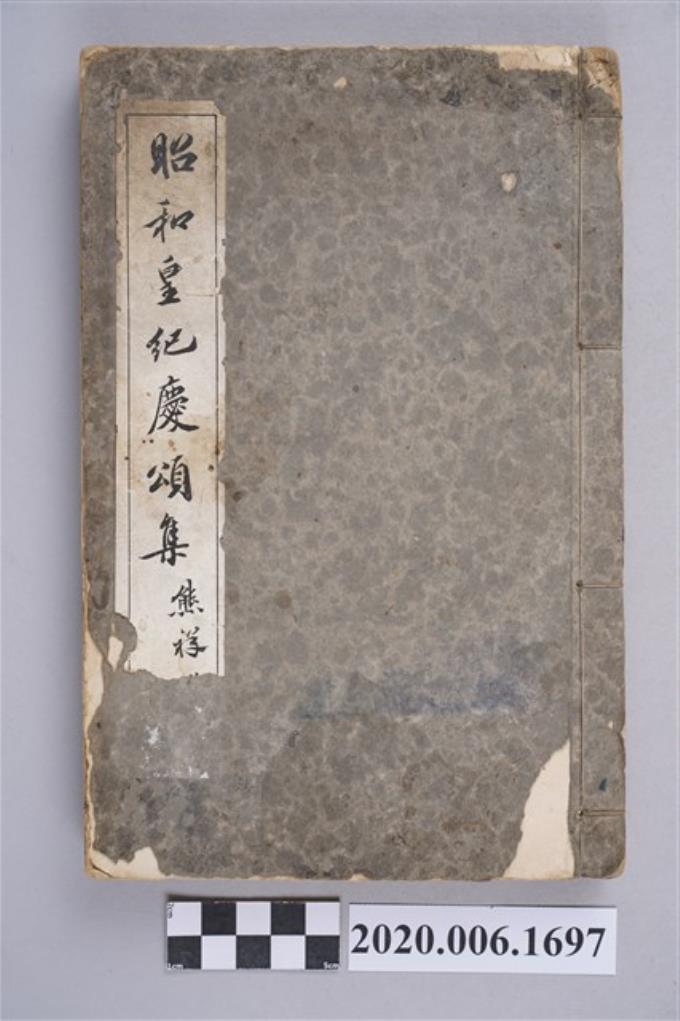 昭和皇紀慶頌集
熊祥
1cm 5cm
2020.006.1697